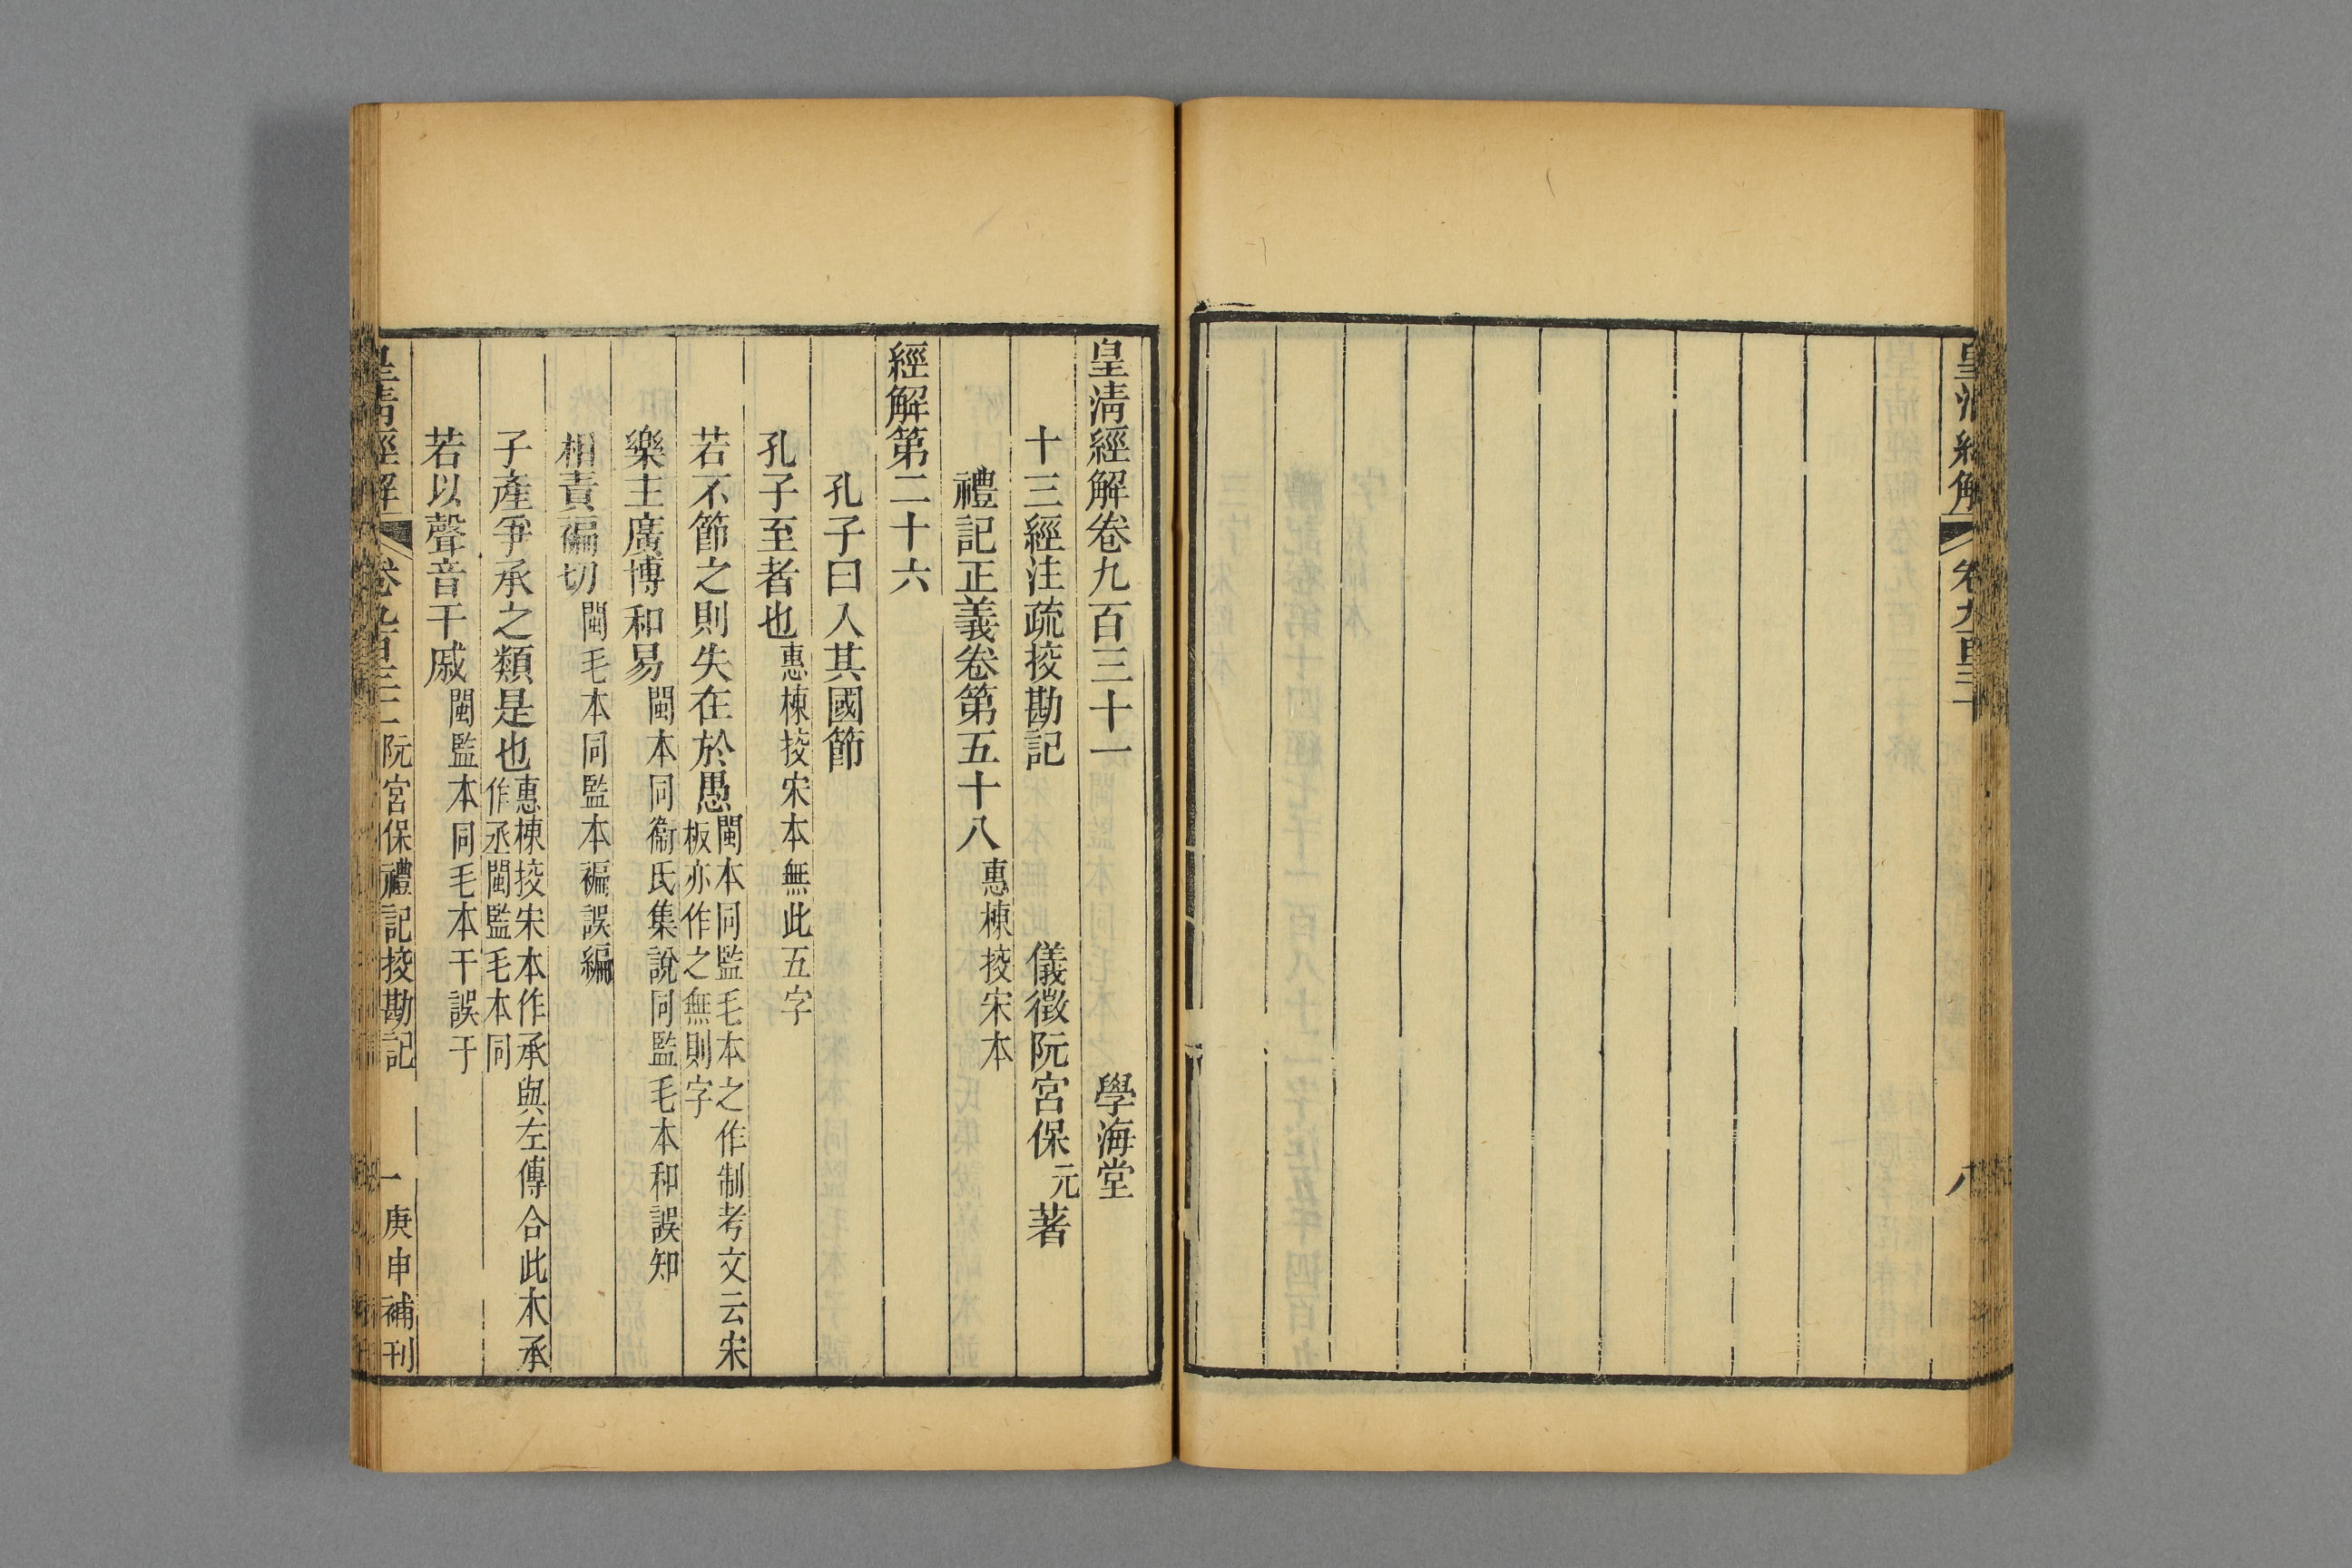 皇清經解
卷九百三十
八
皇清經解卷九百三十一
學海堂
十三經注疏挍勘記
儀徵阮宮保元著
禮記正義卷第五十八惠棟挍宋本
經解第二十六
孔子曰入其國節
孔子至者也惠棟挍宋本無此五字
若不節之則失在於愚閩本同監毛本之作制考文云宋
板亦作之無則字
樂主廣博和易閩本同衞氏集說同監毛本和誤知
相責褊切閩毛本同監本褊誤編
子產爭承之類是也惠棟挍宋本作承與左傳合此本承
作丞閩監毛本同
若以聲音干戚閩監本同毛本干誤于
皇清經解
卷九百三十一
阮宮保禮記挍勘記
一
庚申補刊